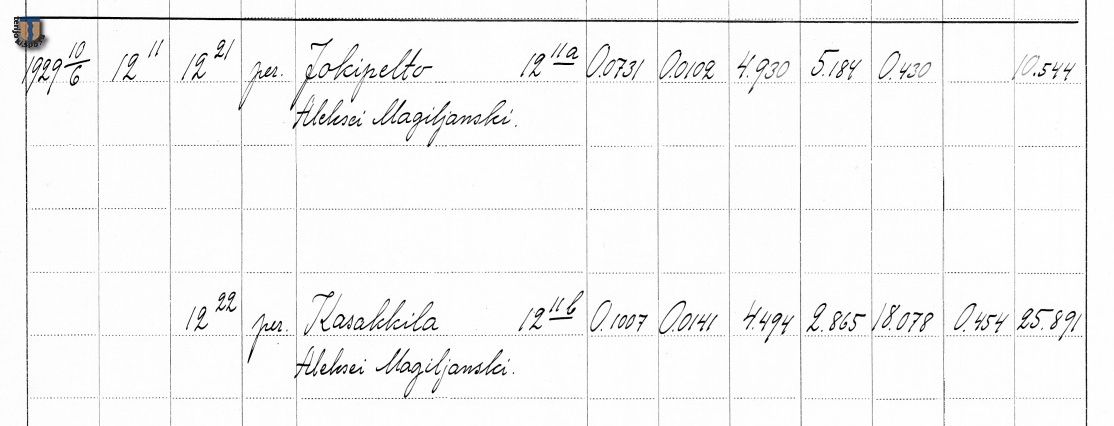 1929 10/6 12 11 12 21 per. Jokipelto 12 11a 0.0731 0.0102 4.930 5.184 0.430 10.544
Aleksei Magiljanski.
12 22 per. Kasakkila 12 11b 0.1007 0.0141 4.494 2.865 18.078 0.454 25.891
Aleksei Magiljanski.